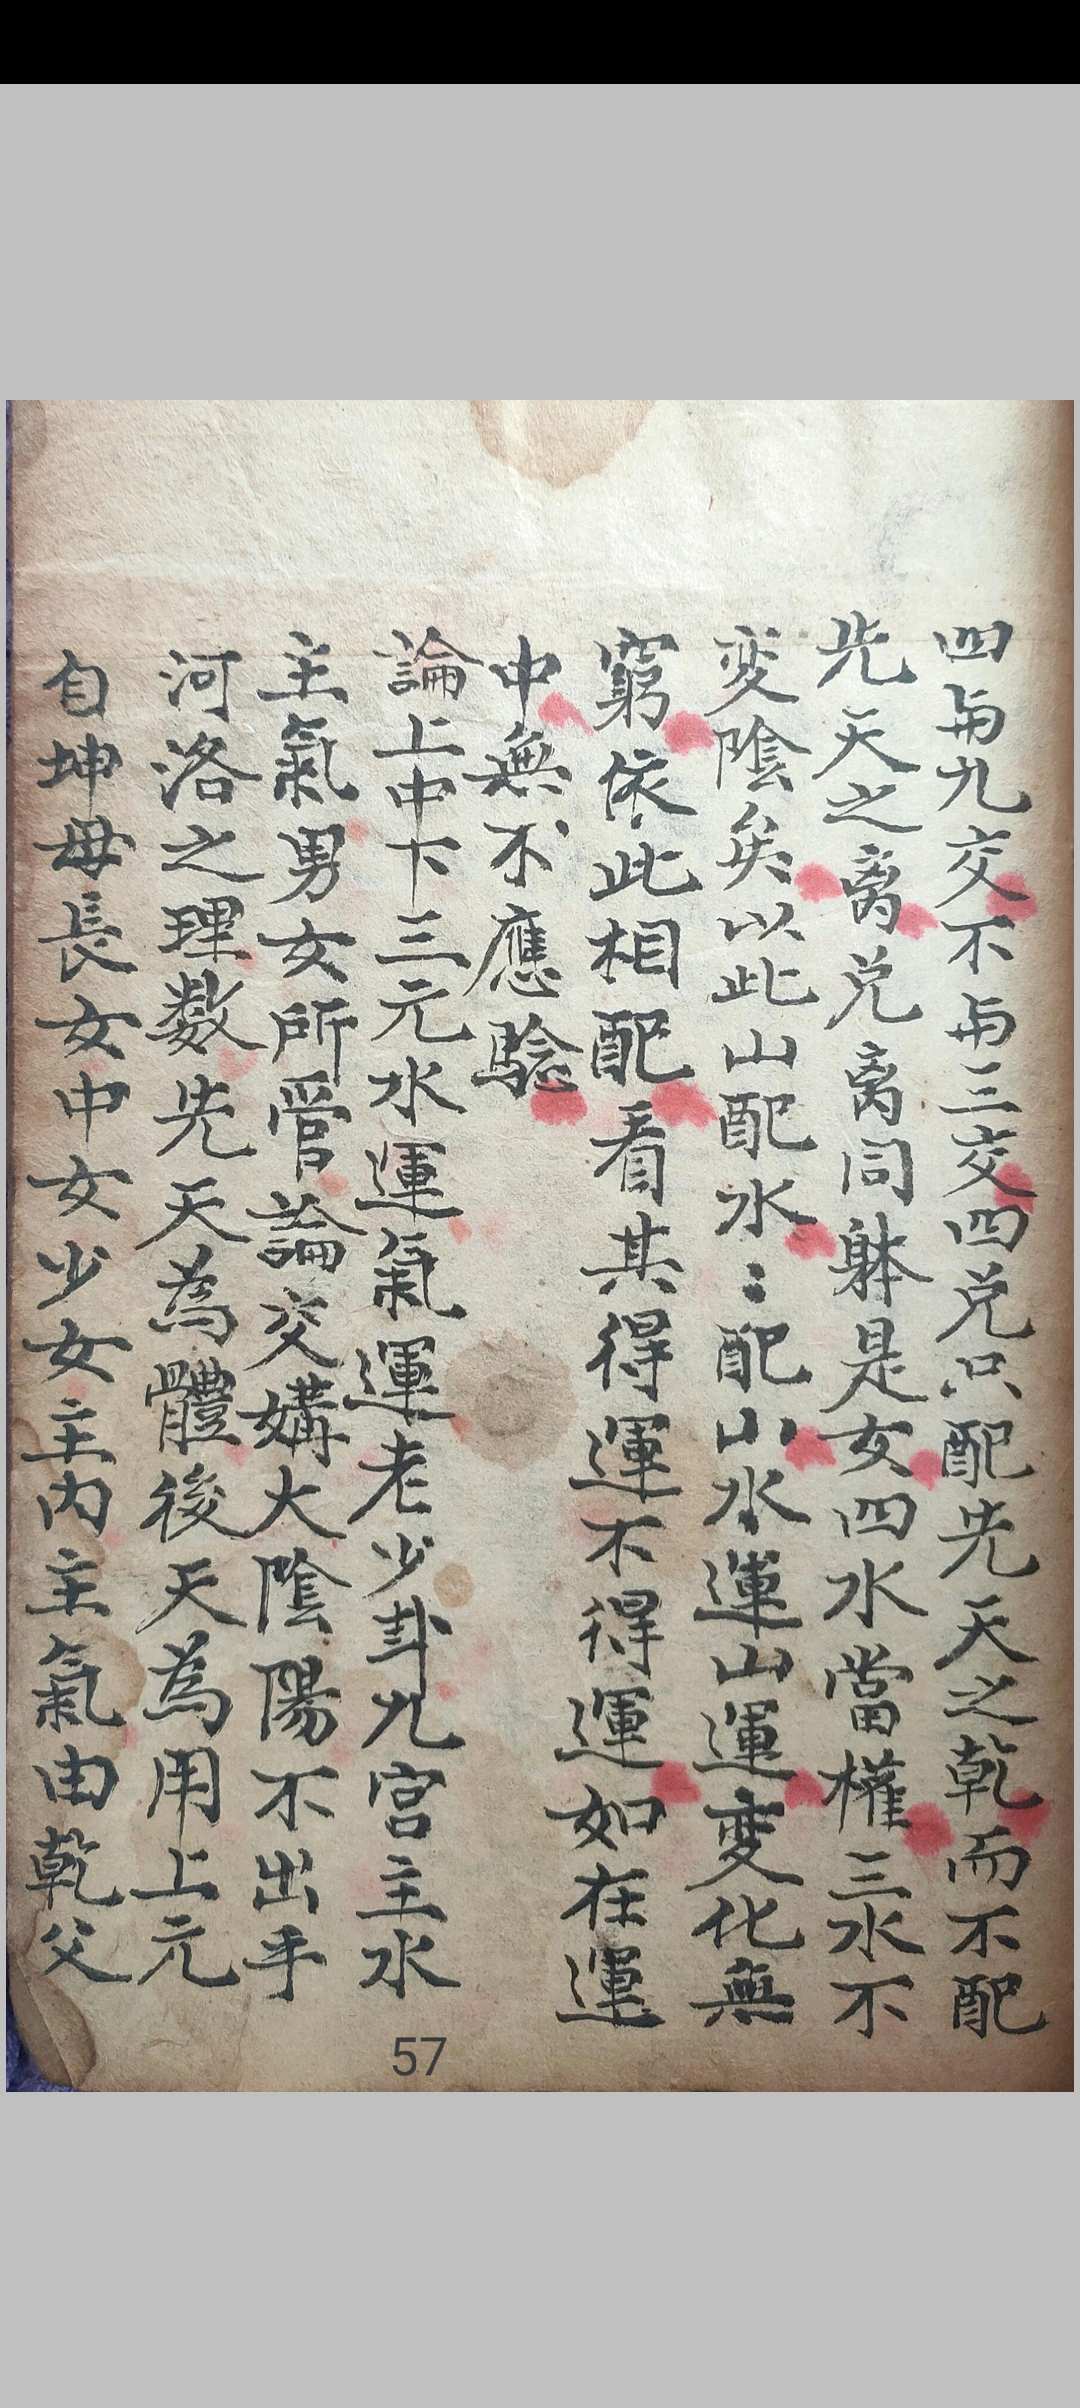 四与九交不与三交四兌只配先天之乾而不配
先天之离兌离同躰是女四水當權三水不
変陰矣以此山配水〻配山水運山運變化無
窮依此相配看其得運不得運如在運
中無不應騐
論上中下三元水運氣運老少卦九宮主水
主氣男女所管論交媾大陰陽不出乎
河洛之理数先天為體後天為用上元
自坤母長女中女少女主内主氣由乾父
57